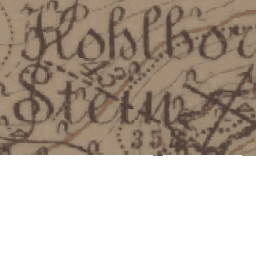 Kohlbor
Stein
35